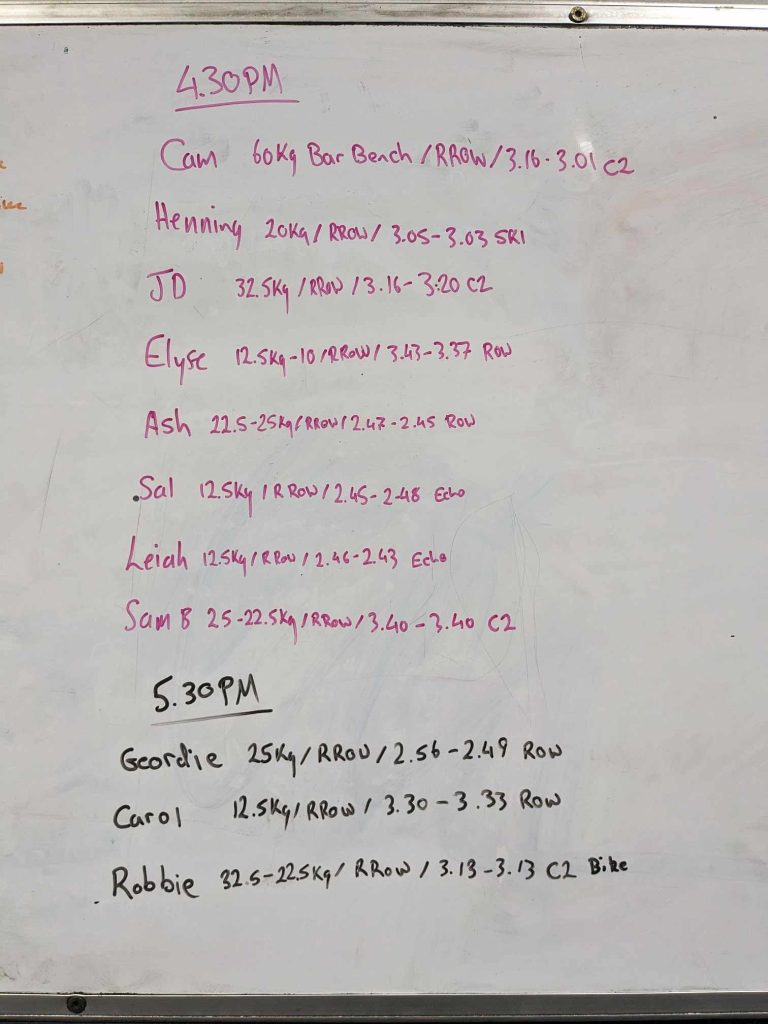 4.30PM
Cam 60Kg Bar Bench / RROW / 3.16 - 3.01 C2
Henning 20Kg / RROW / 3.05 - 3.03 SKI
JD 32.5Kg / RROW / 3.16 - 3:20 C2
Elyse 12.5Kg-10 / RROW / 3.43 - 3.37 Row
Ash 22.5-25Kg / RROW / 2.47 - 2.45 Row
Sal 12.5Kg / R ROW / 2.45 - 2.48 Echo
Leiah 12.5Kg / R ROW / 2.46 - 2.43 Echo
Sam B 25-22.5Kg / RROW / 3.40 - 3.40 C2
5.30PM
Geordie 25Kg / RROW / 2.56 - 2.49 Row
Carol 12.5Kg / RROW / 3.30 - 3.33 Row
Robbie 32.5-22.5Kg / RROW / 3.13 - 3.13 C2 Bike